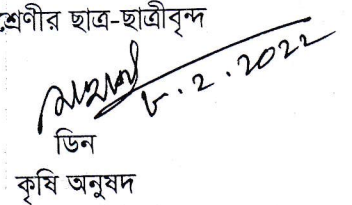 শ্রেণীর ছাত্র-ছাত্রীবৃন্দ
৮.2.2022
ডিন
কৃষি অনুষদ